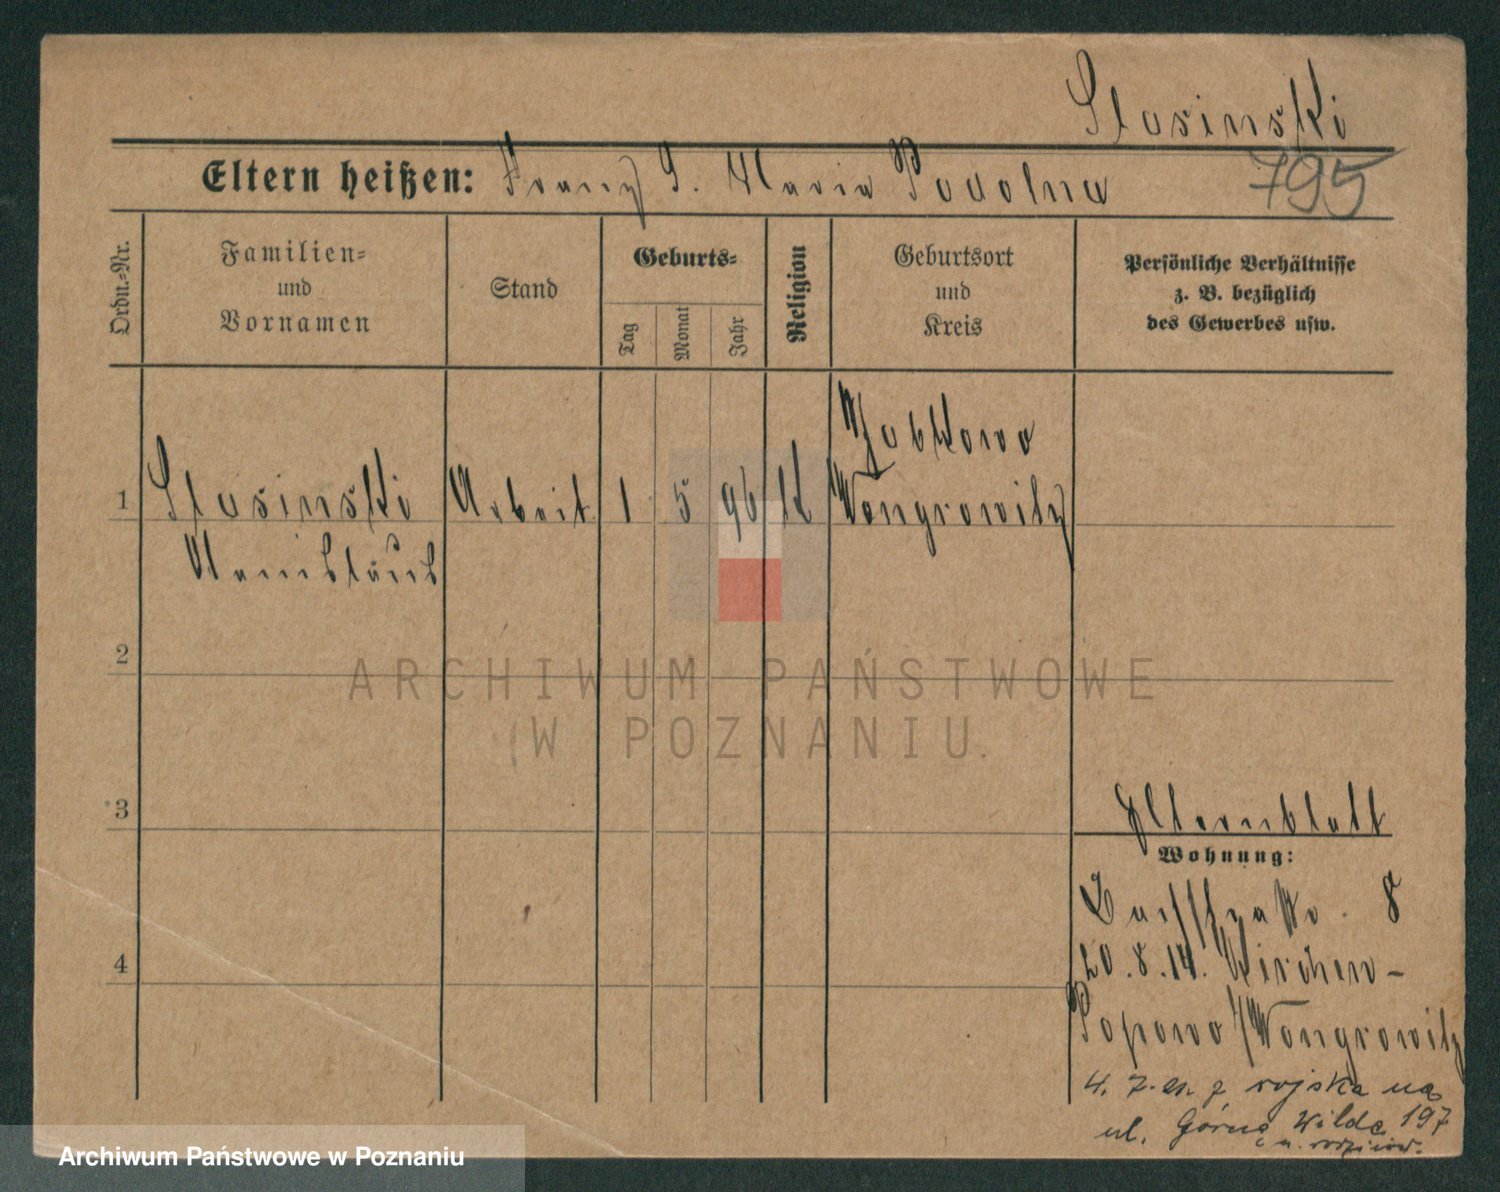 Slosinski
795
Eltern heißen: Franz S. Maria Podolna
Ordn.-Nr.
Familien-
und
Vornamen
Stand
Geburts-
Tag
Monat
Jahr
Religion
Geburtsort
und
Kreis
Persönliche Verhältnisse
z. B. bezüglich
des Gewerbes usw.
Jabkowo
1 Slosinski Arbeit 1 5 96 K Wongrowitz
Stanislaus
2
ARCHIWUM PAŃSTWOWE
W POZNANIU
3
Elternblatt
Wohnung:
8
4
20.8.14. Kirchen-
Popowo Wongrowitz
4. 7. z wojska na
ul. Górna Wilda 197
Archiwum Państwowe w Poznaniu